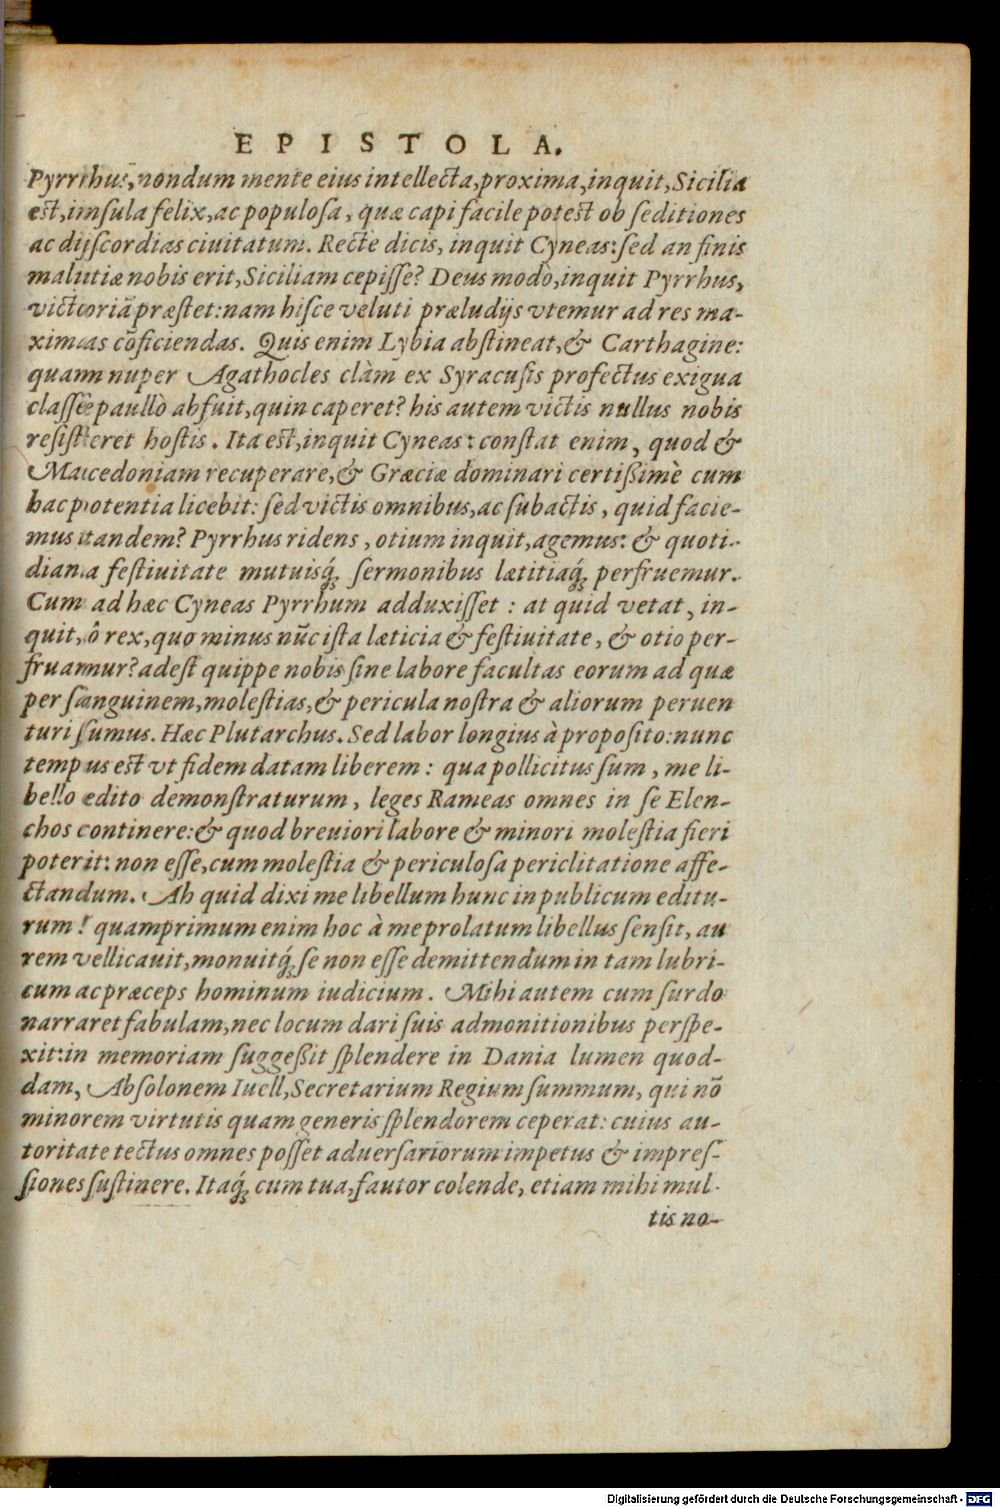 EPISTOLA.
Pyrrhus, nondum mente eius intellecta, proxima, inquit, Sicilia
est, insula felix, ac populosa, quæ capi facile potest ob seditiones
ac discordias ciuitatum. Recte dicis, inquit Cyneas: sed an finis
malitiæ nobis erit, Siciliam cepisse? Deus modò, inquit Pyrrhus,
victoriā præstet: nam hisce veluti præludijs vtemur ad res ma-
ximas cōficiendas. Quis enim Lybia abstineat, & Carthagine:
quam nuper Agathocles clàm ex Syracusis profectus exigua
classe paullò abfuit, quin caperet? his autem victis nullus nobis
resisteret hostis. Ita est, inquit Cyneas: constat enim, quod &
Macedoniam recuperare, & Græciæ dominari certißimè cum
hac potentia licebit: sed victis omnibus, ac subactis, quid facie-
mus tandem? Pyrrhus ridens, otium inquit, agemus: & quoti-
diana festiuitate mutuisq́; sermonibus lætitiaq́; perfruemur.
Cum ad hæc Cyneas Pyrrhum adduxisset: at quid vetat, in-
quit, ô rex, quo minus nūc ista læticia & festiuitate, & otio per-
fruamur? adest quippe nobis sine labore facultas eorum ad quæ
per sanguinem, molestias, & pericula nostra & aliorum peruen
turi sumus. Hæc Plutarchus. Sed labor longius à proposito: nunc
tempus est vt fidem datam liberem: qua pollicitus sum, me li-
bello edito demonstraturum, leges Rameas omnes in se Elen-
chos continere: & quod breuiori labore & minori molestia fieri
poterit: non esse, cum molestia & periculosa periclitatione affe-
ctandum. Ah quid dixi me libellum hunc in publicum editu-
rum! quamprimum enim hoc à me prolatum libellus sensit, au
rem vellicauit, monuitq́; se non esse demittendum in tam lubri-
cum ac præceps hominum iudicium. Mihi autem cum surdo
narraret fabulam, nec locum dari suis admonitionibus perspe-
xit: in memoriam suggeßit splendere in Dania lumen quod-
dam, Absolonem Iuell, Secretarium Regium summum, qui nō
minorem virtutis quam generis splendorem ceperat: cuius au-
toritate tectus omnes posset aduersariorum impetus & impres-
siones sustinere. Itaq́; cum tua, fautor colende, etiam mihi mul-
tis no-
Digitalisierung gefördert durch die Deutsche Forschungsgemeinschaft - DFG